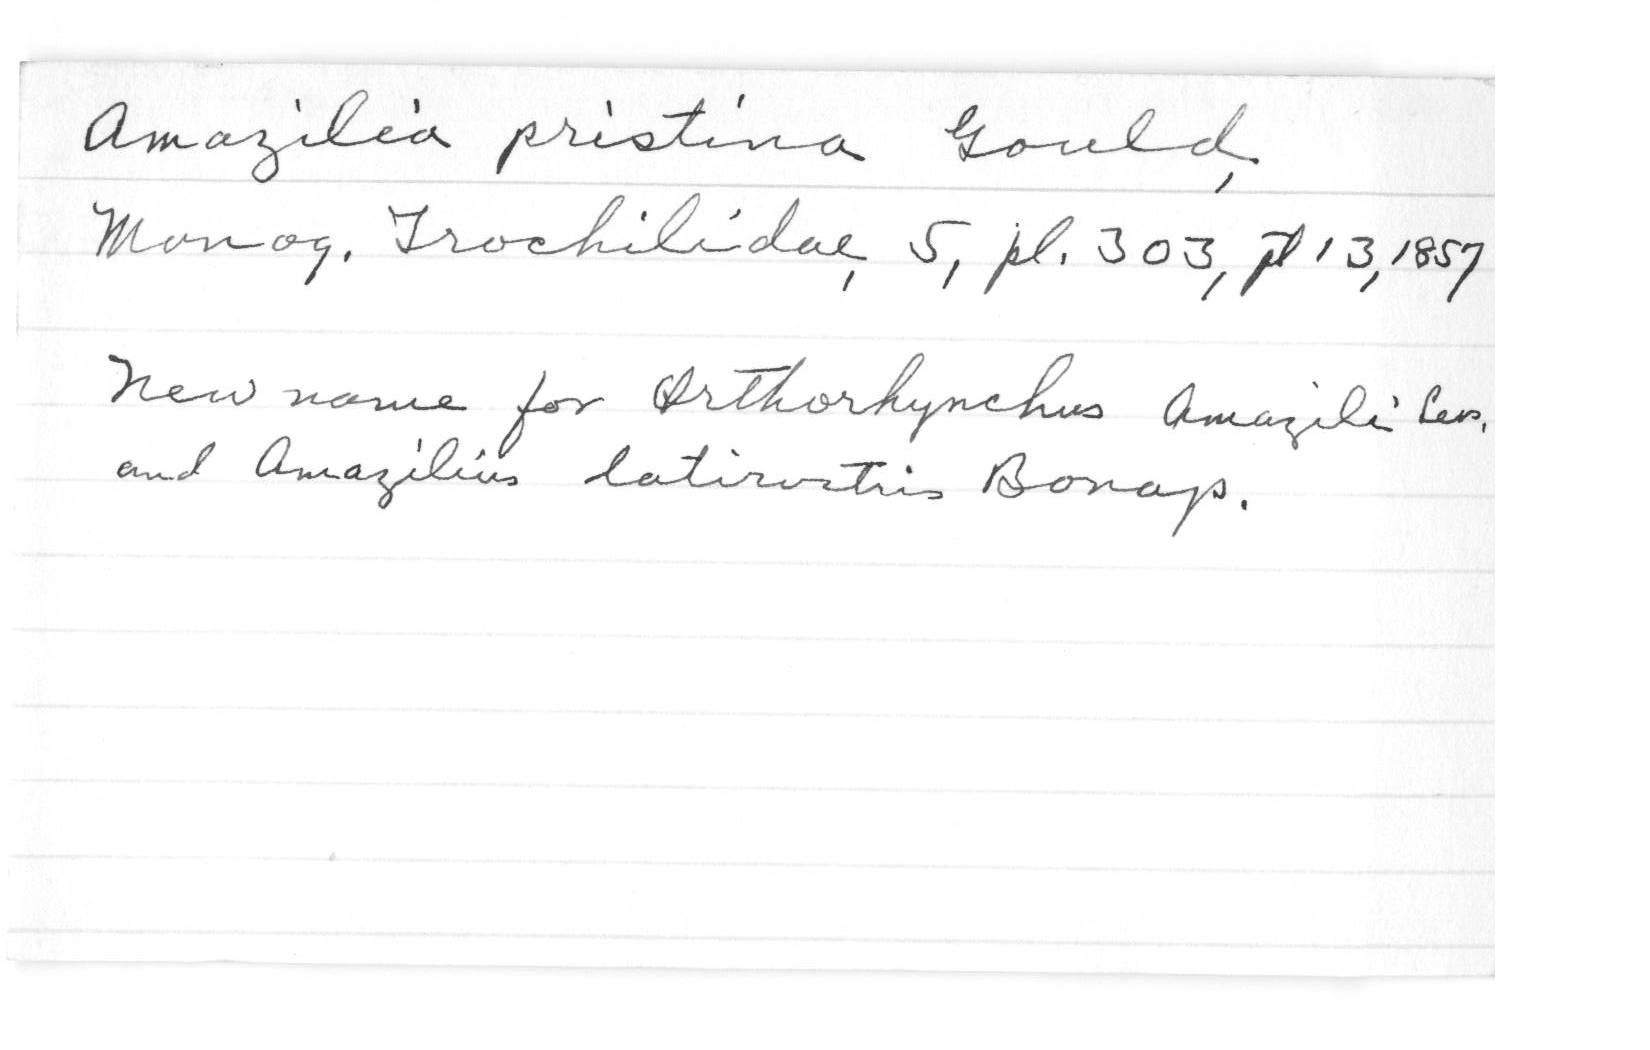 Amazilia pristina Gould,
Monog. Trochilidae, 5, pl. 303, pt 13, 1857
New name for Orthorhynchus Amazili Less.
and Amazilius latirostris Bonap.